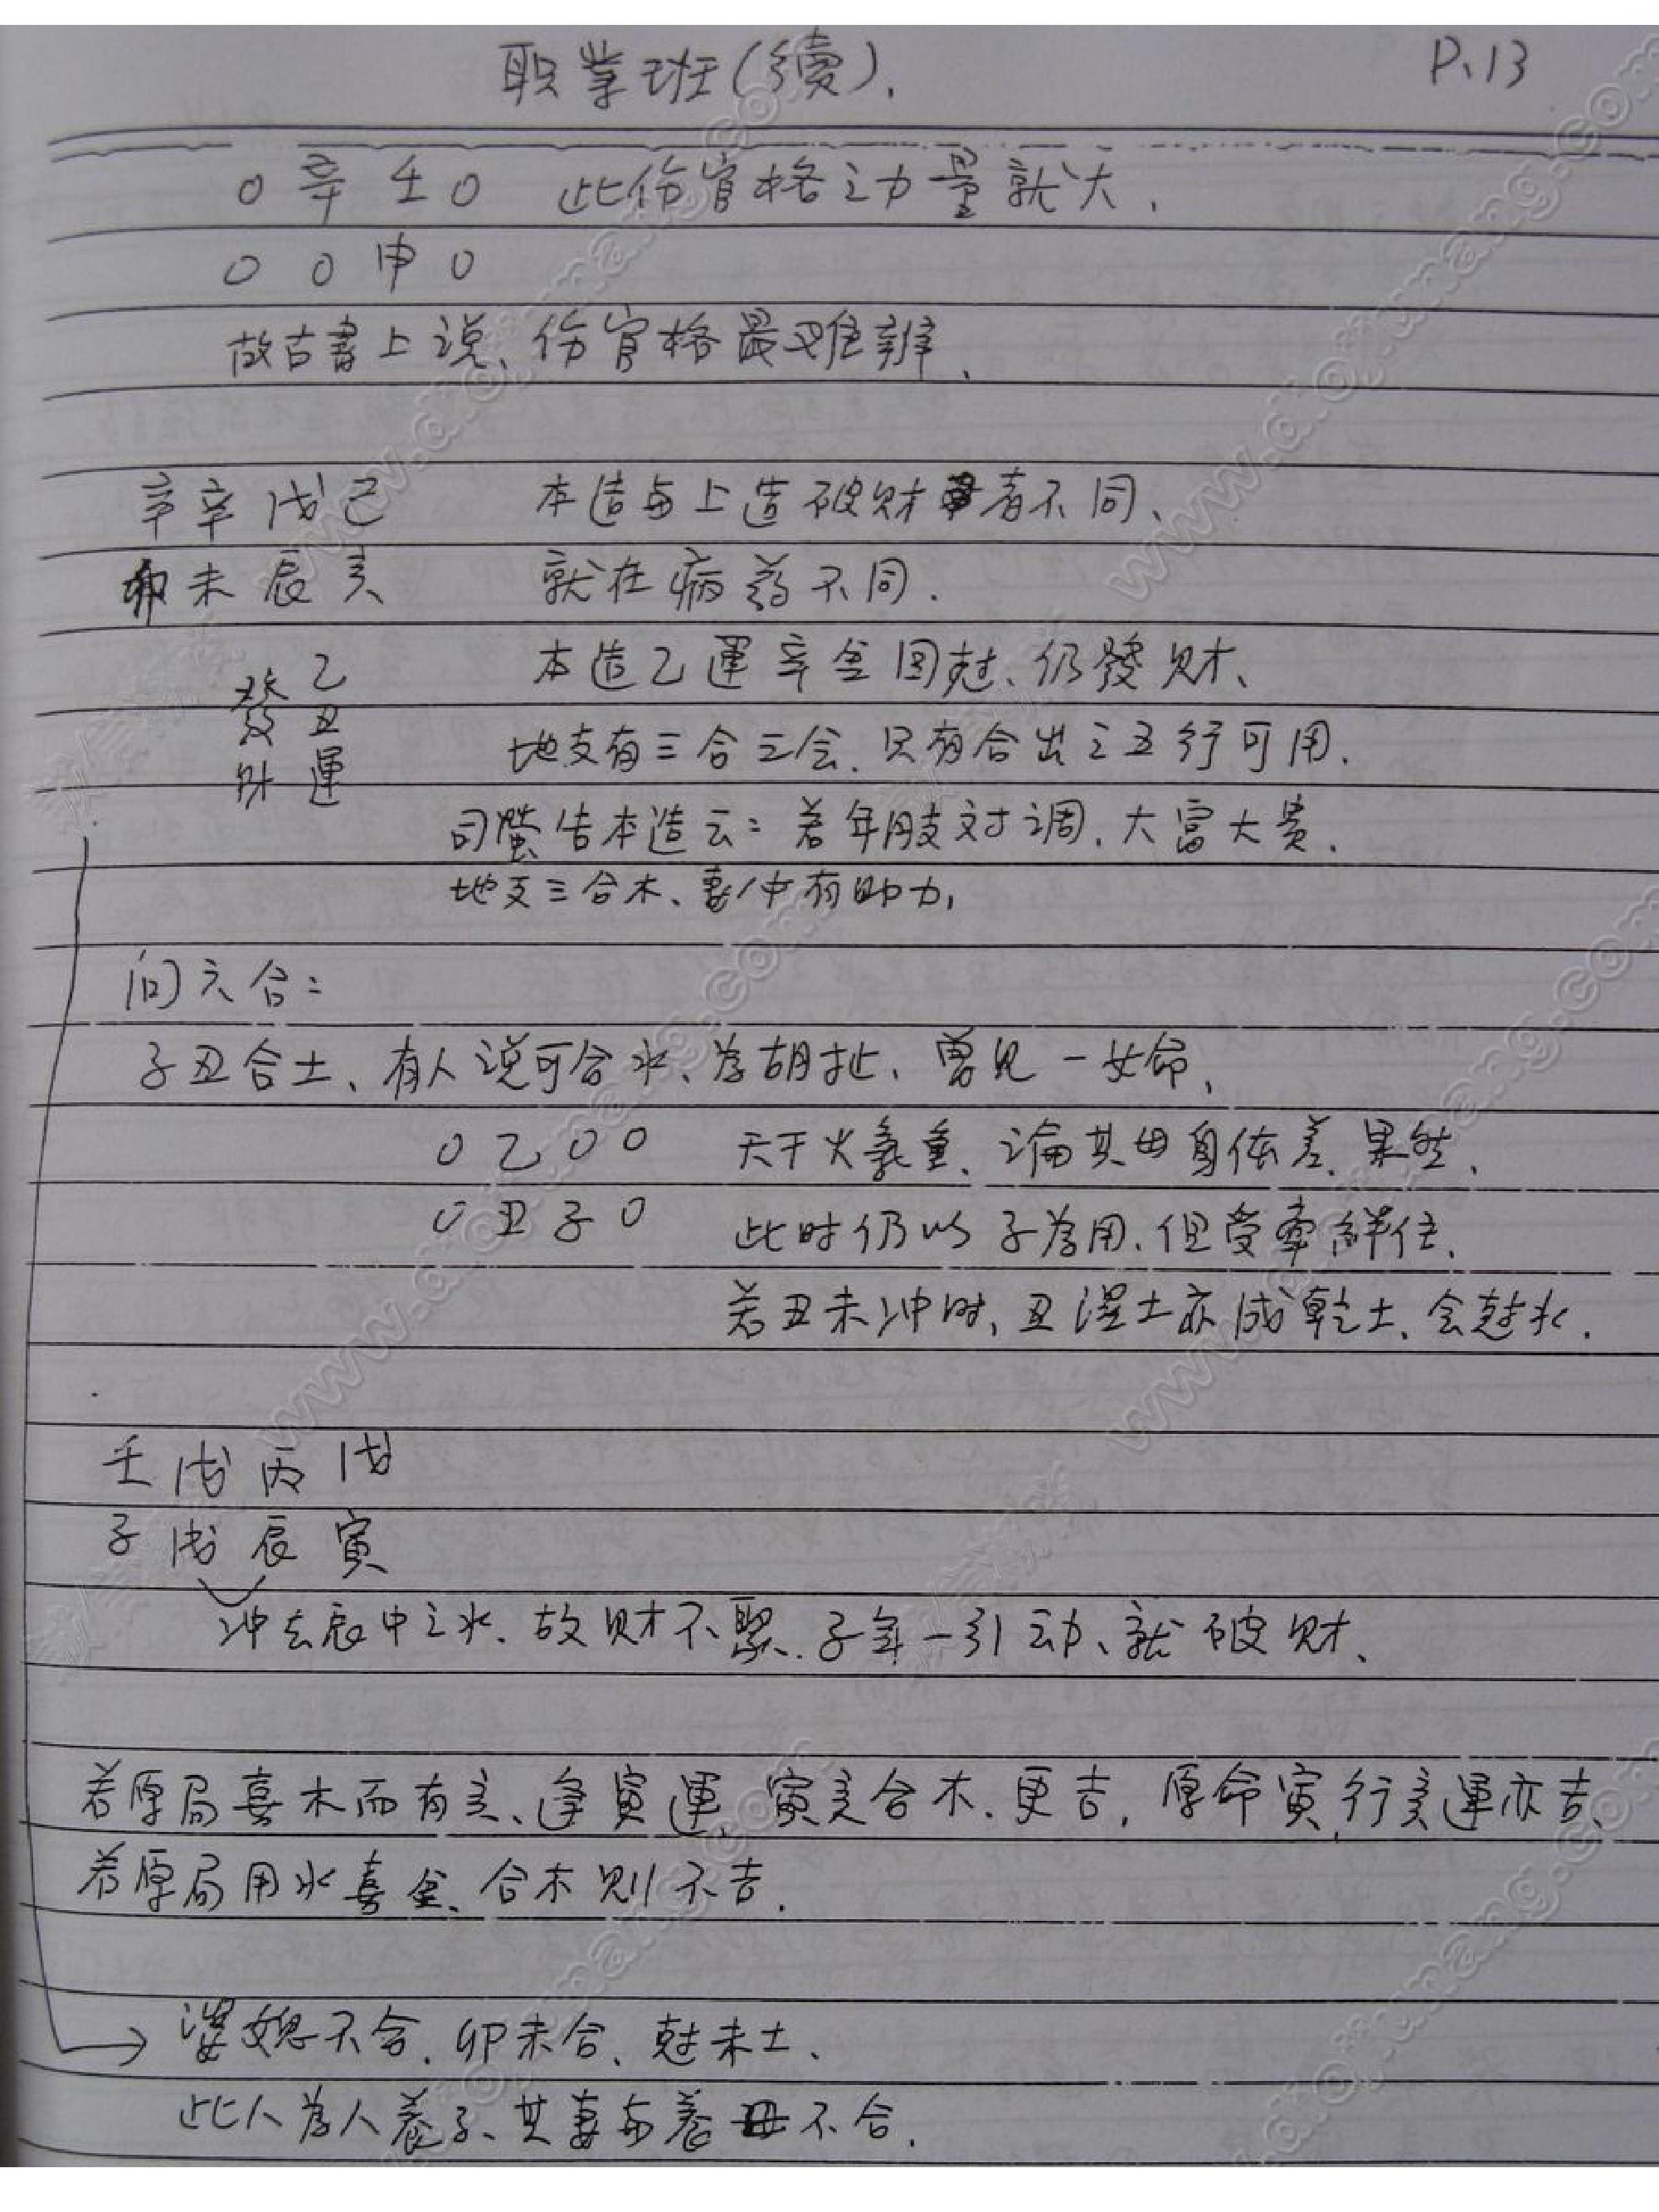 职業班(續). P.13
0 辛 壬 0 此伤官格之力量就大.
0 0 申 0
故古書上说、伤官格最难辨、
辛辛戊己 本造与上造破财者不同、
卯未辰亥 就在病药不同.
乙丑運 發财
本造乙運辛金回尅、仍發财、
地支有三合三会、只有合出之五行可用.
司螢告本造云:若年月支对调、大富大贵.
地支三合木、喜/中有助力,
问六合:
子丑合土、有人说可合水、为胡扯、曾见一女命、
0 乙 0 0 天干火氣重、论其母身体差、果然、
0 丑 子 0 此时仍以子为用、但受牵絆住、
若丑未冲时、丑湿土亦成乾土、会尅水.
壬戊丙戊
子戌辰寅
冲去辰中之水、故财不聚、子年一引动、就破财、
若原局喜木而有亥、逢寅運、寅亥合木、更吉, 原命寅,行亥運亦吉、
若原局用水喜金、合木则不吉.
→ 婆媳不合、卯未合、尅未土、
此人为人养子、其妻与养母不合.
www.douyang.com